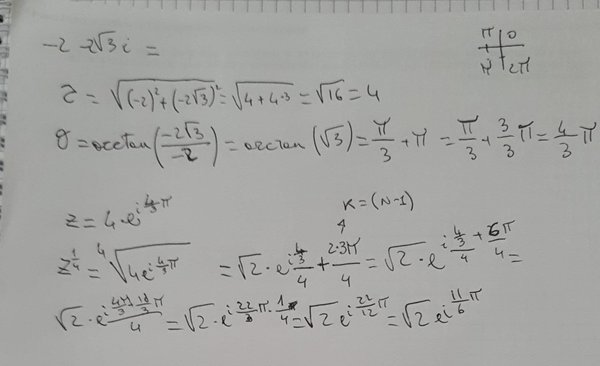 -2 -2√3 i =
π 0
π 2π
r = √((-2)² + (-2√3)²) = √(4+4·3) = √16 = 4
θ = arctan(-2√3/-2) = arctan(√3) = π/3 + π = π/3 + 3/3 π = 4/3 π
z = 4·e^(i 4/3 π)
K = (N-1)
z^(1/4) = ⁴√(4e^(i 4/3 π)) = √2 · e^(i (4/3)/4 + 2·3π/4) = √2 · e^(i (4/3)/4 + 6π/4) =
√2 · e^(i (4/3 π + 18/3 π)/4) = √2 · e^(i 22/3 π · 1/4) = √2 e^(i 22/12 π) = √2 e^(i 11/6 π)